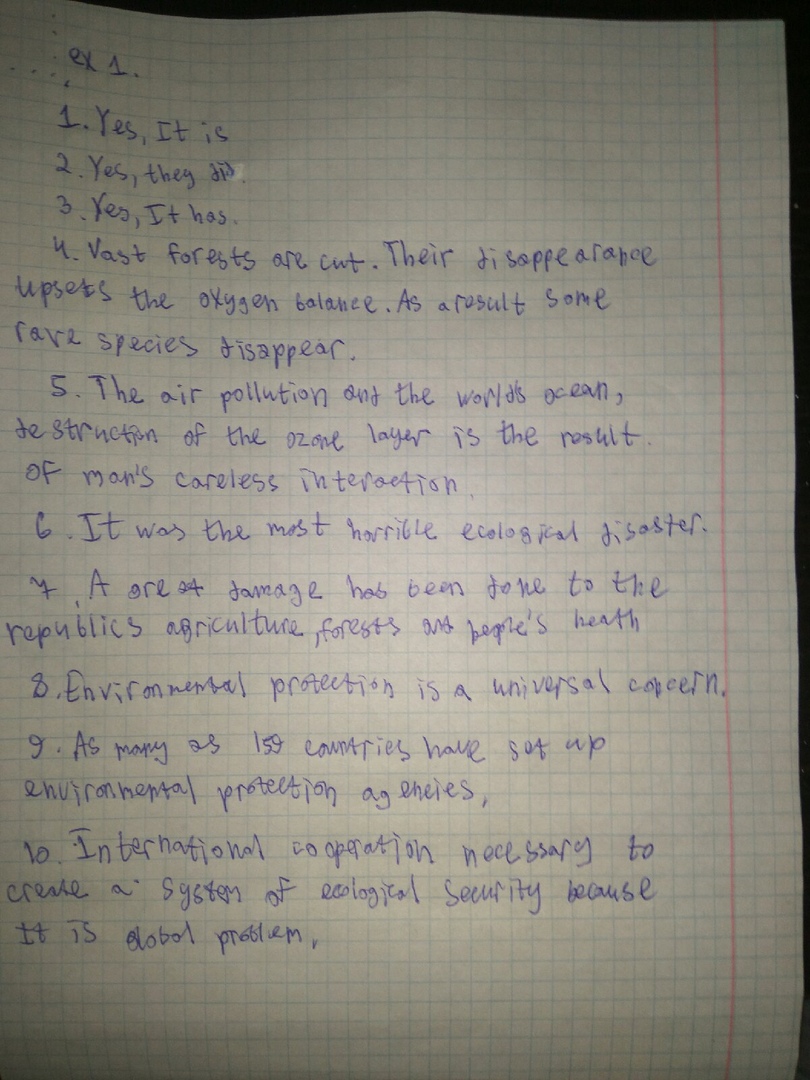 ex 1.
1. Yes, It is
2. Yes, they did.
3. Yes, It has.
4. Vast forests are cut. Their disappearance
upsets the oxygen balance. As a result some
rare species disappear.
5. The air pollution and the world's ocean,
destruction of the ozone layer is the result.
of man's careless interaction.
6. It was the most horrible ecological disaster.
7. A great damage has been done to the
republics agriculture, forests and people's heath
8. Environmental protection is a universal concern.
9. As many as 159 countries have set up
environmental protection agencies,
10. International cooperation necessary to
create a system of ecological security because
It is global problem,